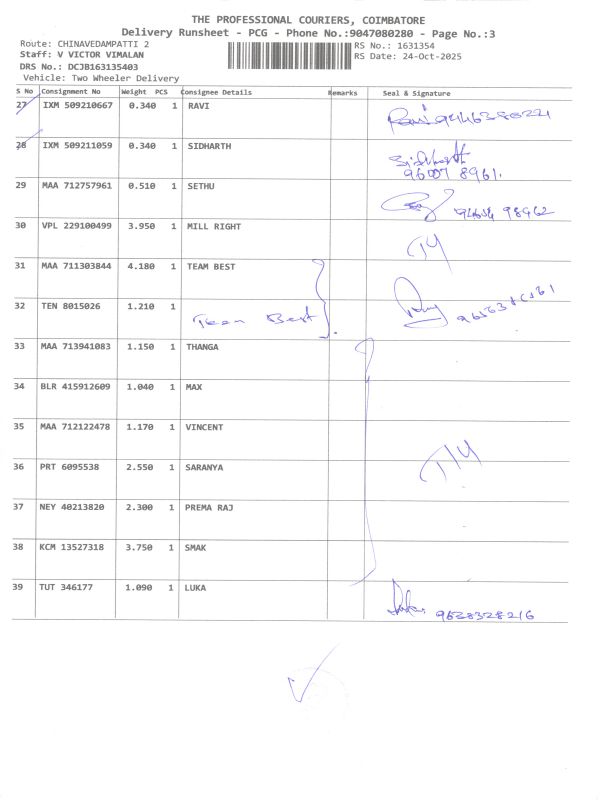 THE PROFESSIONAL COURIERS, COIMBATORE
Delivery Runsheet - PCG - Phone No.:9047080280 - Page No.:3
Route: CHINAVEDAMPATTI 2
RS No.: 1631354
Staff: V VICTOR VIMALAN
RS Date: 24-Oct-2025
DRS No.: DCJB163135403
Vehicle: Two Wheeler Delivery
S No Consignment No Weight PCS Consignee Details Remarks Seal & Signature
27 IXM 509210667 0.340 1 RAVI
28 IXM 509211059 0.340 1 SIDHARTH Sidharth
96007 8961
29 MAA 712757961 0.510 1 SETHU
30 VPL 229100499 3.950 1 MILL RIGHT
31 MAA 711303844 4.180 1 TEAM BEST
32 TEN 8015026 1.210 1 Team Best
33 MAA 713941083 1.150 1 THANGA
34 BLR 415912609 1.040 1 MAX
35 MAA 712122478 1.170 1 VINCENT
36 PRT 6095538 2.550 1 SARANYA
37 NEY 40213820 2.300 1 PREMA RAJ
38 KCM 13527318 3.750 1 SMAK
39 TUT 346177 1.090 1 LUKA 9628328216